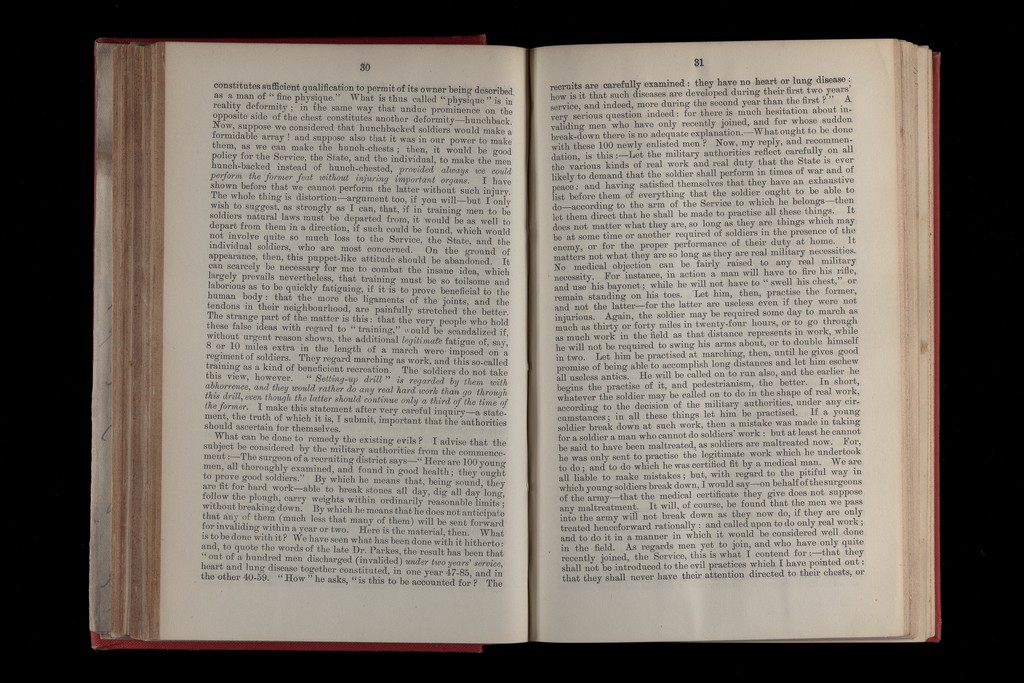 30
constitutes sufficient qualification to permit of its owner being described
as a man of " fine physique." What is thus called " physique " is in
reality deformity ; in the same way that undue prominence on the
opposite side of the chest constitutes another deformity—hunchback.
Now, suppose we considered that hunchbacked soldiers would make a
formidable array ! and suppose also that it was in our power to make
them, as we can make the hunch-chests ; then, it would be good
policy for the Service, the State, and the individual, to make the men
hunch-backed instead of hunch-chested, provided always we could
perform the former feat without injuring important organs. I have
shown before that we cannot perform the latter without such injury.
The whole thing is distortion—argument too, if you will—but I only
wish to suggest, as strongly as I can, that, if in training men to be
soldiers natural laws must be departed from, it would be as well to
depart from them in a direction, if such could be found, which would
not involve quite so much loss to the Service, the State, and the
individual soldiers, who are most concerned. On the ground of
appearance, then, this puppet-like attitude should be abandoned. It
can scarcely be necessary for me to combat the insane idea, which
largely prevails nevertheless, that training must be so toilsome and
laborious as to be quickly fatiguing, if it is to prove beneficial to the
human body : that the more the ligaments of the joints, and the
tendons in their neighbourhood, are painfully stretched the better.
The strange part of the matter is this : that the very people who hold
these false ideas with regard to " training," would be scandalized if,
without urgent reason shown, the additional legitimate fatigue of, say,
8 or 10 miles extra in the length of a march were imposed on a
regiment of soldiers. They regard marching as work, and this so-called
training as a kind of beneficient recreation. The soldiers do not take
this view, however. " Setting-up drill " is regarded by them with
abhorrence, and they would rather do any real hard work than go through
this drill, even though the latter should continue only a third of the time of
the former. I make this statement after very careful inquiry—a state-
ment, the truth of which it is, I submit, important that the authorities
should ascertain for themselves.
What can be done to remedy the existing evils ? I advise that the
subject be considered by the military authorities from the commence-
ment :—The surgeon of a recruiting district says—" Here are 100 young
men, all thoroughly examined, and found in good health ; they ought
to prove good soldiers." By which he means that, being sound, they
are fit for hard work—able to break stones all day, dig all day long,
follow the plough, carry weights within ordinarily reasonable limits ;
without breaking down. By which he means that he does not anticipate
that any of them (much less that many of them) will be sent forward
for invaliding within a year or two. Here is the material, then. What
is to be done with it ? We have seen what has been done with it hitherto :
and, to quote the words of the late Dr. Parkes, the result has been that
" out of a hundred men discharged (invalided) under two years' service,
heart and lung disease together constituted, in one year 47·85, and in
the other 40·59. " How " he asks, " is this to be accounted for ? The
31
recruits are carefully examined : they have no heart or lung disease :
how is it that such diseases are developed during their first two years'
service, and indeed, more during the second year than the first ? " A
very serious question indeed : for there is much hesitation about in-
validing men who have only recently joined, and for whose sudden
break-down there is no adequate explanation.—What ought to be done
with these 100 newly enlisted men ? Now, my reply, and recommen-
dation, is this :—Let the military authorities reflect carefully on all
the various kinds of real work and real duty that the State is ever
likely to demand that the soldier shall perform in times of war and of
peace : and having satisfied themselves that they have an exhaustive
list before them of everything that the soldier ought to be able to
do—according to the arm of the Service to which he belongs—then
let them direct that he shall be made to practise all these things. It
does not matter what they are, so long as they are things which may
be at some time or another required of soldiers in the presence of the
enemy, or for the proper performance of their duty at home. It
matters not what they are so long as they are real military necessities.
No medical objection can be fairly raised to any real military
necessity. For instance, in action a man will have to fire his rifle,
and use his bayonet ; while he will not have to " swell his chest," or
remain standing on his toes. Let him, then, practise the former,
and not the latter—for the latter are useless even if they were not
injurious. Again, the soldier may be required some day to march as
much as thirty or forty miles in twenty-four hours, or to go through
as much work in the field as that distance represents in work, while
he will not be required to swing his arms about, or to double himself
in two. Let him be practised at marching, then, until he gives good
promise of being able to accomplish long distances and let him eschew
all useless antics. He will be called on to run also, and the earlier he
begins the practise of it, and pedestrianism, the better. In short,
whatever the soldier may be called on to do in the shape of real work,
according to the decision of the military authorities, under any cir-
cumstances ; in all these things let him be practised. If a young
soldier break down at such work, then a mistake was made in taking
for a soldier a man who cannot do soldiers' work : but at least he cannot
be said to have been maltreated, as soldiers are maltreated now. For,
he was only sent to practise the legitimate work which he undertook
to do ; and to do which he was certified fit by a medical man. We are
all liable to make mistakes ; but, with regard to the pitiful way in
which young soldiers break down, I would say—on behalf of the surgeons
of the army—that the medical certificate they give does not suppose
any maltreatment. It will, of course, be found that the men we pass
into the army will not break down as they now do, if they are only
treated henceforward rationally : and called upon to do only real work ;
and to do it in a manner in which it would be considered well done
in the field. As regards men yet to join, and who have only quite
recently joined, the Service, this is what I contend for :—that they
shall not be introduced to the evil practices which I have pointed out :
that they shall never have their attention directed to their chests, or